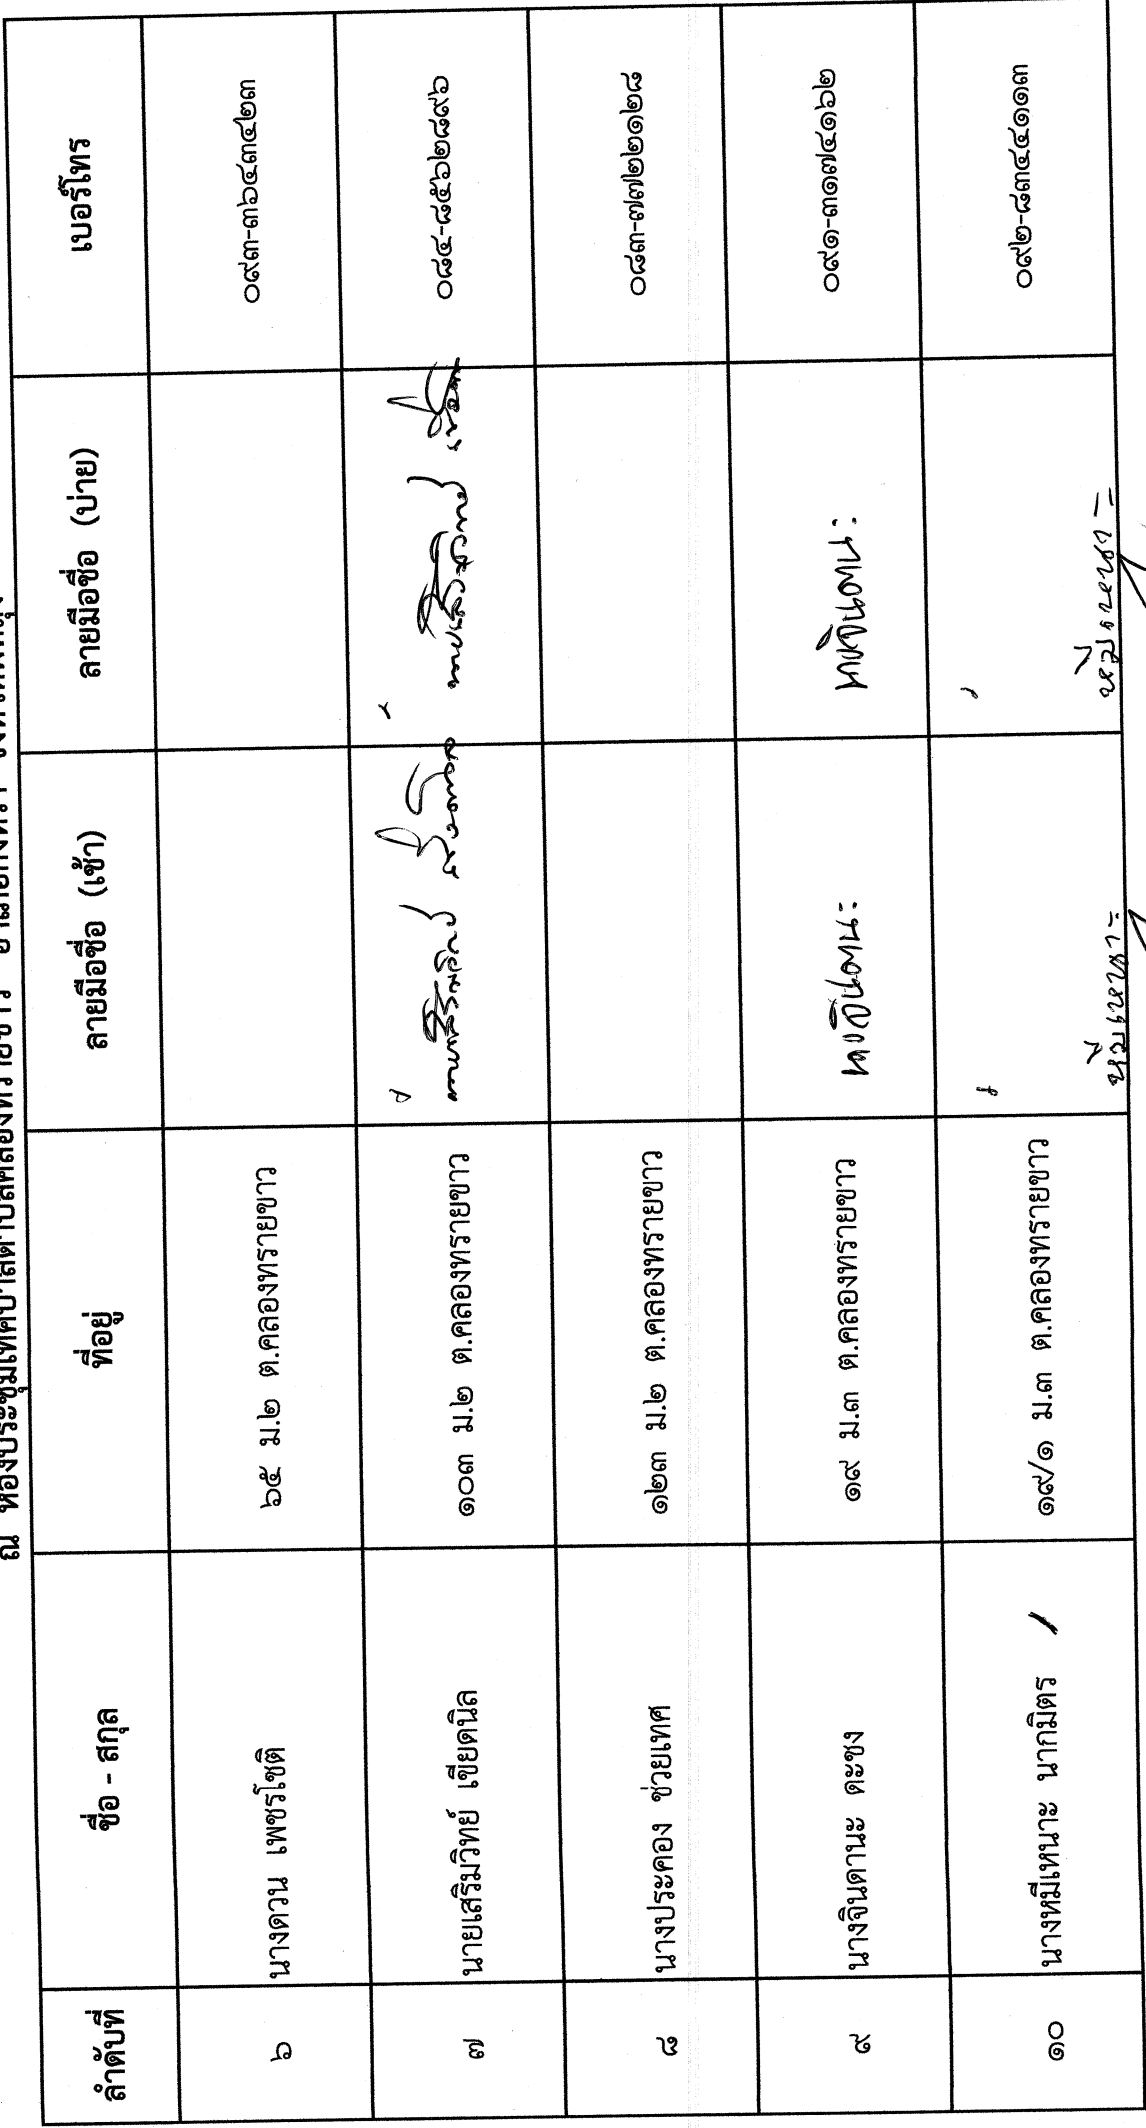 ณ ห้องประชุมเทศบาลตำบลคลองทรายขาว
ลำดับที่ ชื่อ - สกุล ที่อยู่ ลายมือชื่อ (เช้า) ลายมือชื่อ (บ่าย) เบอร์โทร
๖ นางดวน เพชรโชติ ๖๕ ม.๒ ต.คลองทรายขาว ๐๙๓-๓๖๔๓๔๒๓
๗ นายเสริมวิทย์ เขียดนิล ๑๐๓ ม.๒ ต.คลองทรายขาว ๐๘๔-๘๕๖๒๘๙๖
๘ นางประคอง ช่วยเทศ ๑๒๓ ม.๒ ต.คลองทรายขาว ๐๘๓-๗๗๒๒๑๒๘
๙ นางจินดานะ ตะชง ๑๙ ม.๓ ต.คลองทรายขาว ๐๙๑-๓๑๗๔๑๖๒
๑๐ นางหมีเหนาะ นากมิตร ๑๙/๑ ม.๓ ต.คลองทรายขาว ๐๙๒-๘๓๔๔๑๑๓